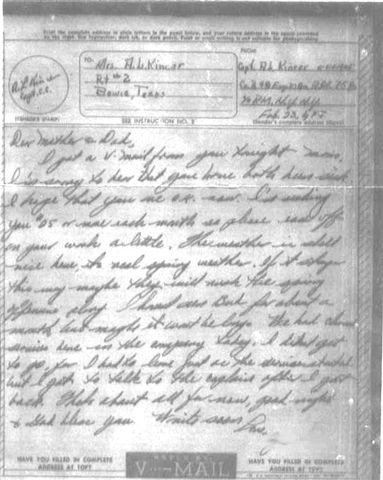 Print the complete address in plain letters in the panel below, and your return address in the space provided
TO: FROM
Mrs. A. L. Kincer Capt. A. L. Kincer
Rt # 2
Bowie, Texas
Feb. 23,
(CENSOR'S STAMP) SEE INSTRUCTION NO. 2 (Sender's complete address above)
Dear Mother & Dad,
I got a V-mail from you tonight mom,
I'm sorry to hear that you have both been sick
I hope that you are O.K. now. I'm sending
you $25 or more each month so please ease off
on your work a little. The weather is still
nice here, its real spring weather. If it stays
this way maybe they will rush the spring
offensive along. I havent seen Bud for about a
month but maybe it wont be long. We had church
services here in the company today. I didnt get
to go for I had to leave just as the services started
but I got to talk to the chaplain after I got
back. Thats about all for now, good night
& God bless you. Write soon,
HAVE YOU FILLED IN COMPLETE ADDRESS AT TOP?
V-MAIL
HAVE YOU FILLED IN COMPLETE ADDRESS AT TOP?